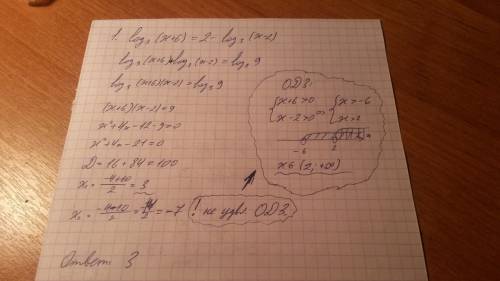 1. log₃(x+6) = 2 - log₃(x-2)
log₃(x+6) + log₃(x-2) = log₃ 9
log₃(x+6)(x-2) = log₃ 9
(x+6)(x-2) = 9
x²+4x-12-9=0
x²+4x-21=0
D = 16+84 = 100
x₁ = (-4+10)/2 = 3
x₂ = = -7
! не удвл. ОДЗ
ОДЗ:
{x+6>0 {x>-6
{x-2>0 {x>2
-6 2 x
x∈(2;+∞)
Ответ 3